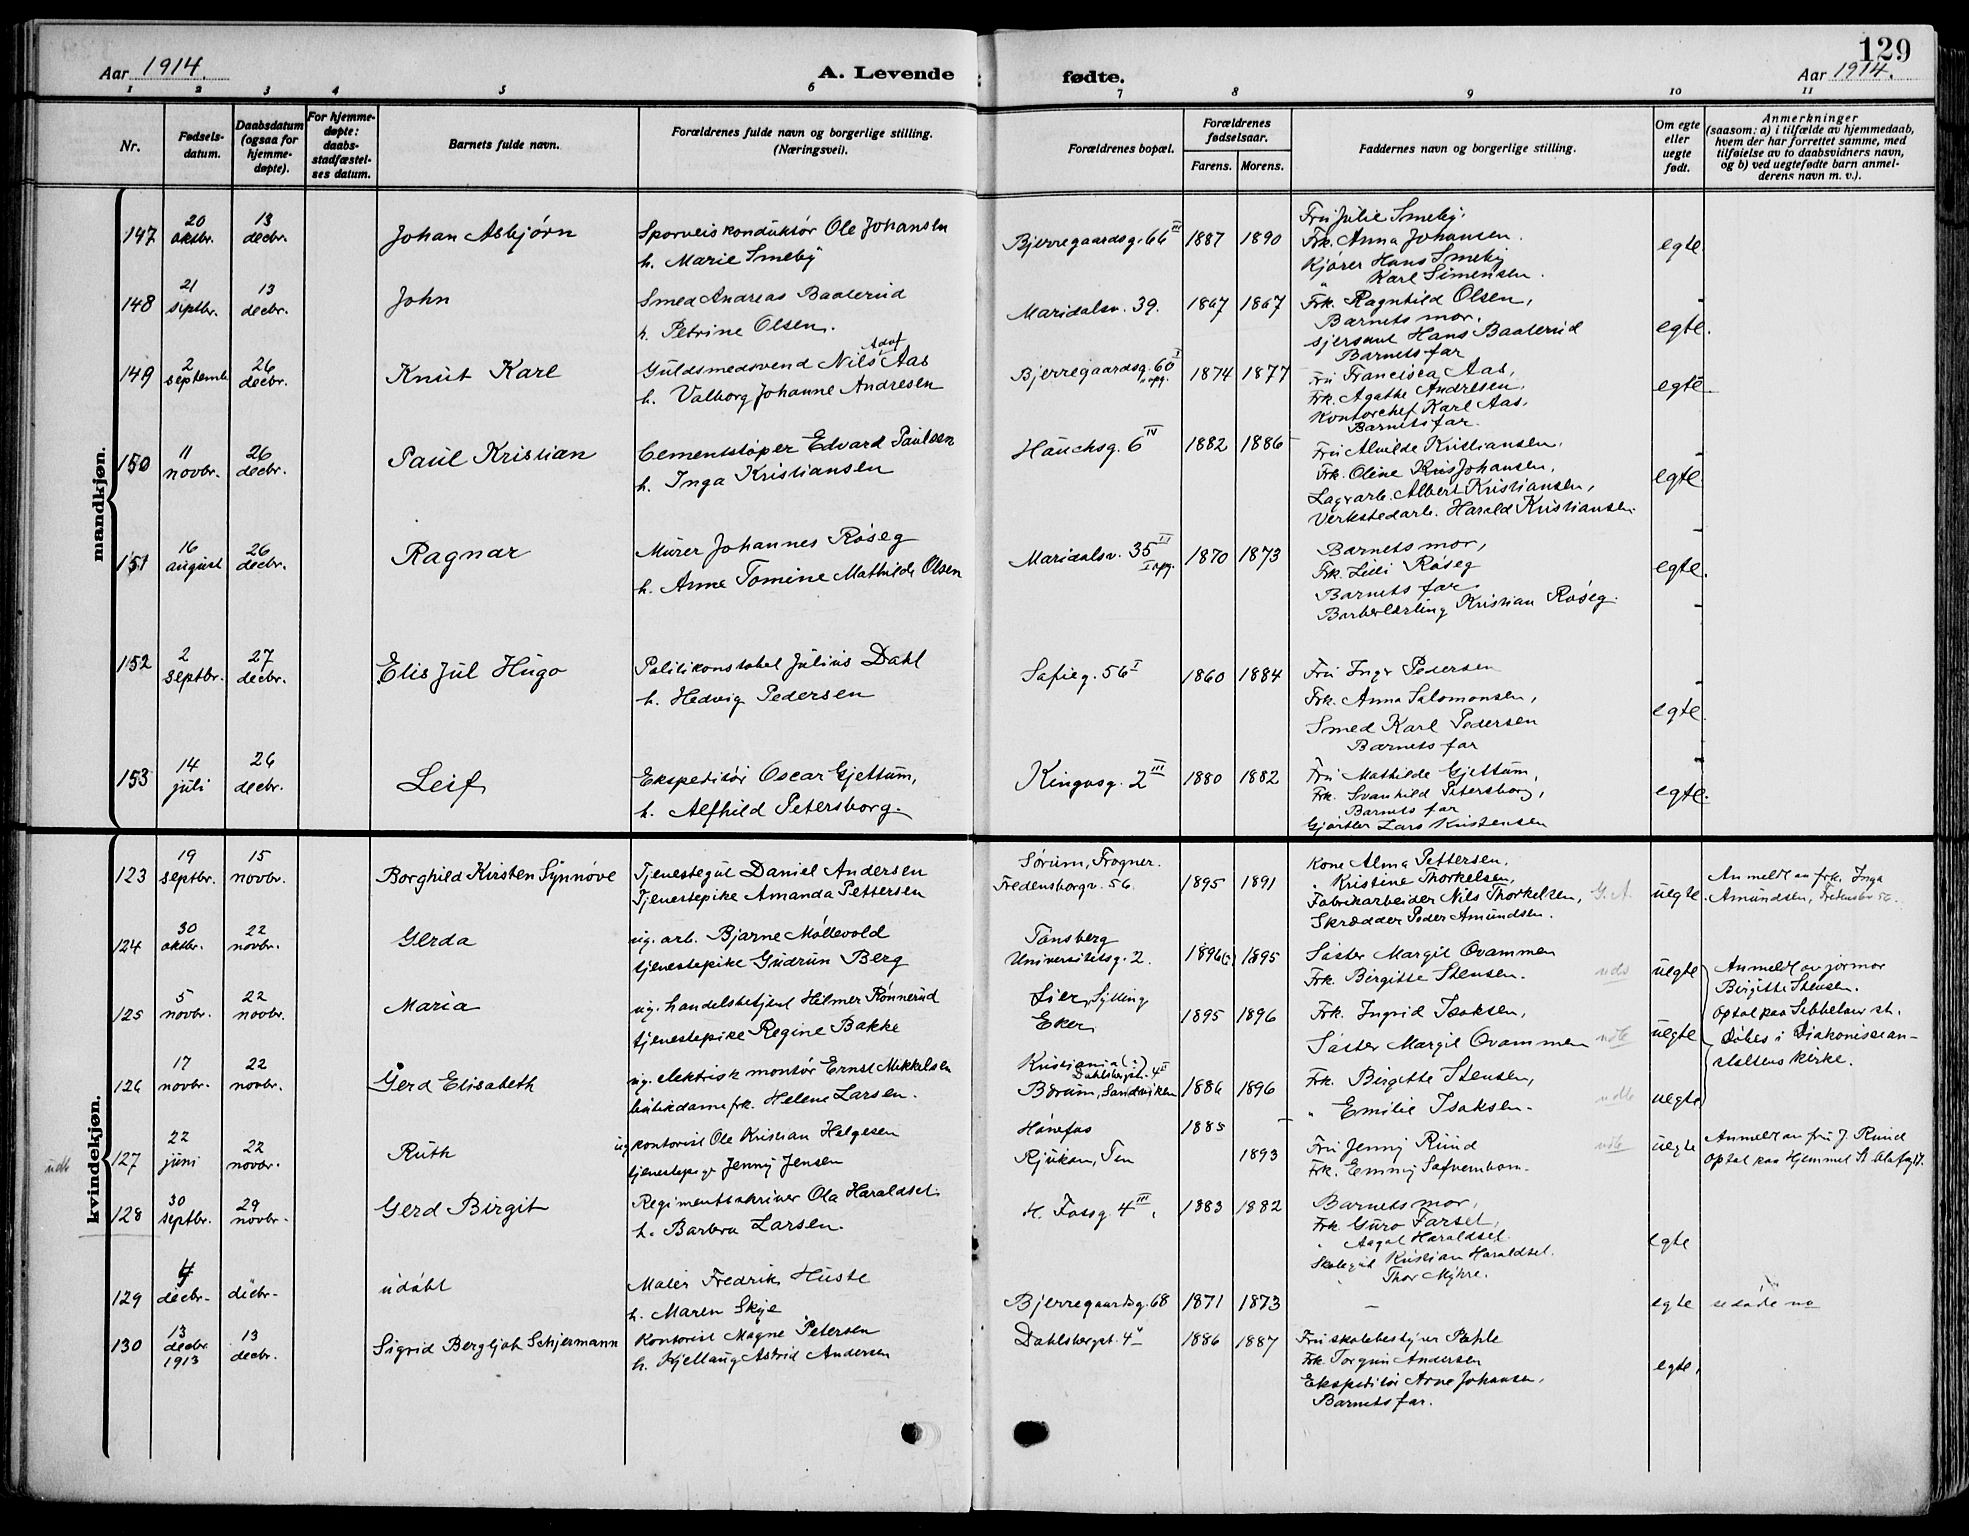 129
Aar 1914.
A. Levende fødte.
Aar 1914.
1 2 3 4 5 6 7 8 9 10 11
Nr.
Fødsels-
datum.
Daabsdatum
(ogsaa for
hjemme-
døpte).
For hjemme-
døpte:
daabs-
stadfæstel-
ses datum.
Barnets fulde navn.
Forældrenes fulde navn og borgerlige stilling.
(Næringsvei).
Forældrenes bopæl.
Forældrenes
fødselsaar.
Farens. Morens.
Faddernes navn og borgerlige stilling.
Om egte
eller
uegte
født.
Anmerkninger
(saasom: a) i tilfælde av hjemmedaab,
hvem der har forrettet samme, med
tilføielse av to daabsvidners navn,
og b) ved uegtefødte barn anmel-
derens navn m. v.).
mandkjøn.
147
20
oktbr.
13
decbr.
Johan Asbjørn
Sporveiskonduktør Ole Johansen
h. Marie Smeby
Bjerregaardsg. 66 III
1887
1890
Fru Julie Smeby.
Frk. Anna Johansen.
Kjører Hans Smeby
" Karl Simensen.
egte
148
21
septbr.
13
decbr.
John
Smed Andreas Baaterud
h. Petrine Olsen.
Maridalsv. 39.
1867
1867
Frk. Ragnhild Olsen,
Barnets mor.
Hans Baaterud
Barnets far
egte.
149
2
septemb
26
decbr.
Knut Karl
Guldsmedsvend Nils Adof Aas
h. Valborg Johanne Andresen
Bjerregaardsg. 60 I
opg.
1874
1877
Fru Francisca Aas,
Frk. Agathe Andresen.
Kontorchef Karl Aas,
Barnets far.
egte
150
11
novbr.
26
decbr.
Paul Kristian
Cementstøper Edvard Paulsen
h. Inga Kristiansen
Hauchsg. 6 IV
1882
1886
Fru Alvilde Kristiansen.
Frk. Oline Johansen,
Lagerarb. Albert Kristiansen,
Verkstedarb. Harald Kristiansen.
egte
151
16
august
26
decbr.
Ragnar
Murer Johannes Røseg
h. Anne Tomine Mathilde Olsen
Maridalsv. 35 II
I opg.
1870
1873
Barnets mor,
Frk. Lilli Røseg
Barnets far
Barberlærling Kristian Røseg.
egte.
152
2
septbr.
27
decbr.
Elis Jul Hugo
Politikonstabel Julius Dahl
h. Hedvig Pedersen
Sofieg. 56 I
1860
1884
Fru Inga Pedersen
Frk. Anna Salomonsen,
Smed Karl Pedersen
Barnets far
egte.
153
14
juli
26
decbr.
Leif
Ekspeditør Oscar Gjettum,
h. Alfhild Petersborg.
Kingosg. 2 III
1880
1882
Fru Mathilde Gjettum,
Frk. Svanhild Petersborg,
Barnets far
Gjørtler Lars Kristensen
egte.
kvindekjøn.
123
19
septbr.
15
novbr.
Borghild Kirsten Synnøve
Tjenestegut Daniel Andersen
Tjenestepike Amanda Pettersen
Sørum, Frogner.
Fredensborgv. 56.
1895
1891
Kone Alma Pettersen.
" Kristine Thorkelsen,
Fabrikarbeider Nils Thorkelsen,
Skrædder Peder Amundsen.
G.A.
uegte
Anmeldt av frk. Inga
Amundsen, Fredensbv 56.
124
30
oktbr.
22
novbr.
Gerda
ug. arb. Bjarne Møllevold
tjenestepike Gudrun Berg
Tønsberg
Universitetsg. 2.
1896(?)
1895
Søster Margit Ovammen
Frk. Birgitte Stensen.
uds
uegte
Anmeldt av jormor
Birgitte Stensen.
125
5
novbr.
22
novbr.
Maria
ug. handelsbetjent Hilmer Rønnerud
tjenestepike Regine Bakke
Lier, Sylling
Eker
1895
1896
Frk. Ingrid Isaksen,
Søster Margit Ovammen
udte
uegte
Optat paa Sebbelows st.
Døbes i Diakonissean-
staltens kirke.
126
17
novbr.
22
novbr.
Gerd Elisabeth
ug. elektrisk montør Ernst Mikkelsen
butikdame frk. Helene Larsen.
Kristiania (?)
Dahlsbergst. 4 II
Bærum, Sandviken
1886
1896
Frk. Birgitte Stensen,
" Emilie Isaksen.
udte
uegte
udt
127
22
juni
22
novbr.
Ruth
ug kontorist Ole Kristian Helgesen
tjenestepige Jenny Jensen
Hønefos
Rjukan, Tin
1885
1893
Fru Jenny Ruud
Frk. Emmy
udte
uegte
Anmeldt av fru J. Ruud
Optat paa Hjemmet St. Olafsgt 7.
128
30
septbr.
29
novbr.
Gerd Birgit
Regimentsskriver Ola Haraldset.
h. Barbra Larsen.
N. Fossg. 4 III.
1883
1882
Barnets mor,
Frk. Guro Farset,
" Aagot Haraldset.
Skolegut Kristian Haraldset.
" Thor Myhre.
egte
129
decbr.
decbr.
udøbt
Maler Fredrik Huste
h. Maren Skije
Bjerregaardsg. 68
1871
1873
—
egte
130
13
decbr.
1913
13
decbr.
Sigrid Bergljot Schjermann
Kontorist Magne Petersen
h. Kjellaug Astrid Andersen
Dahlsbergst. 4 II
1886
1887
Fru skolebestyrer Pahle
Frk. Torgun Andersen
Ekspeditør Arne Johansen,
Barnets far.
egte.